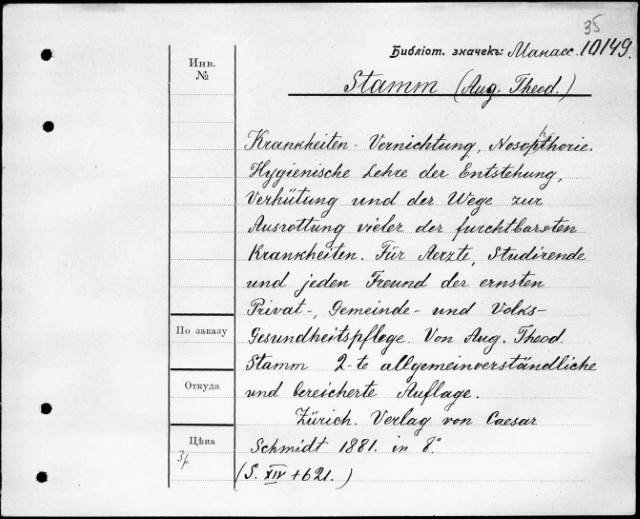 35
Библіот. значекъ: Манасс. 10149.
Инв.
№
Stamm (Aug. Theod.)
Krankheiten-Vernichtung, Nosophthorie.
Hygienische Lehre der Entstehung,
Verhütung und der Wege zur
Ausrottung vieler der furchtbarsten
Krankheiten. Für Aerzte, Studirende
und jeden Freund der ernsten
Privat-, Gemeinde- und Volks-
Gesundheitspflege. Von Aug. Theod.
По заказу
Stamm 2-te allgemeinverständliche
Откуда
und bereicherte Auflage.
Zürich. Verlag von Caesar
Цѣна
Schmidt 1881. in 8°
(S. XIV + 621.)